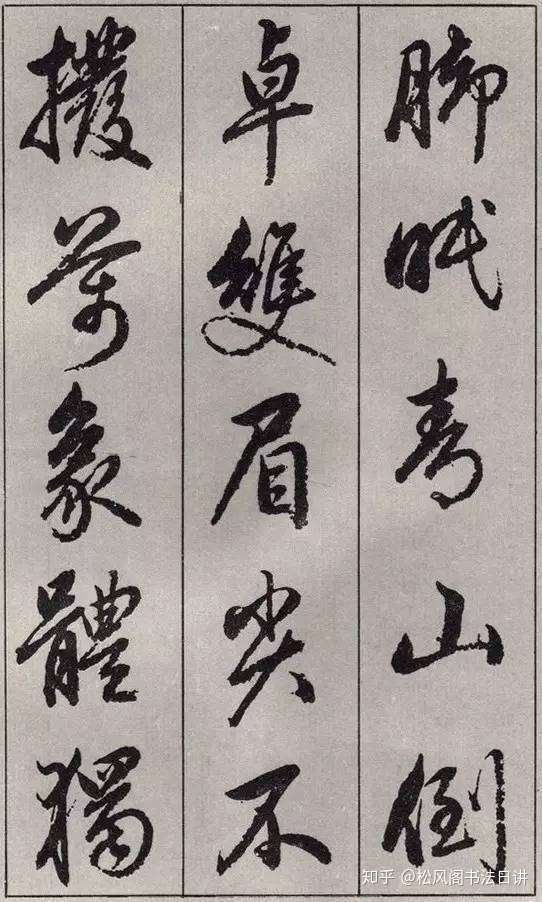 脚青山倒
卓雙眉尖不
撥萬象體獨
知乎 @松风阁书法日讲